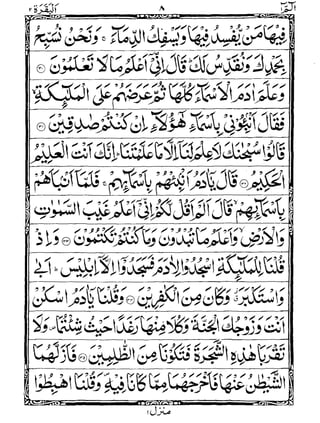 الٓمّٓ ١ ٨ البقرة ٢
فِيْهَا مَنْ يُّفْسِدُ فِيْهَا وَيَسْفِكُ الدِّمَآءَ ۚ وَنَحْنُ نُسَبِّحُ
بِحَمْدِكَ وَنُقَدِّسُ لَكَ ؕ قَالَ اِنِّيْٓ اَعْلَمُ مَا لَا تَعْلَمُوْنَ ۝٣٠
وَعَلَّمَ اٰدَمَ الْاَسْمَآءَ كُلَّهَا ثُمَّ عَرَضَهُمْ عَلَى الْمَلٰٓئِكَةِ ۙ
فَقَالَ اَنْۢبِـُٔوْنِيْ بِاَسْمَآءِ هٰٓؤُلَآءِ اِنْ كُنْتُمْ صٰدِقِيْنَ ۝٣١
قَالُوْا سُبْحٰنَكَ لَا عِلْمَ لَنَآ اِلَّا مَا عَلَّمْتَنَا ؕ اِنَّكَ اَنْتَ الْعَلِيْمُ
الْحَكِيْمُ ۝٣٢ قَالَ يٰٓاٰدَمُ اَنْۢبِئْهُمْ بِاَسْمَآئِهِمْ ۚ فَلَمَّآ اَنْۢبَاَهُمْ
بِاَسْمَآئِهِمْ ۙ قَالَ اَلَمْ اَقُلْ لَّكُمْ اِنِّيْٓ اَعْلَمُ غَيْبَ السَّمٰوٰتِ
وَالْاَرْضِ ۙ وَاَعْلَمُ مَا تُبْدُوْنَ وَمَا كُنْتُمْ تَكْتُمُوْنَ ۝٣٣ وَاِذْ
قُلْنَا لِلْمَلٰٓئِكَةِ اسْجُدُوْا لِاٰدَمَ فَسَجَدُوْٓا اِلَّآ اِبْلِيْسَ ؕ اَبٰى
وَاسْتَكْبَرَ ۗ وَكَانَ مِنَ الْكٰفِرِيْنَ ۝٣٤ وَقُلْنَا يٰٓاٰدَمُ اسْكُنْ
اَنْتَ وَزَوْجُكَ الْجَنَّةَ وَكُلَا مِنْهَا رَغَدًا حَيْثُ شِئْتُمَا ۪ وَلَا
تَقْرَبَا هٰذِهِ الشَّجَرَةَ فَتَكُوْنَا مِنَ الظّٰلِمِيْنَ ۝٣٥ فَاَزَلَّهُمَا
الشَّيْطٰنُ عَنْهَا فَاَخْرَجَهُمَا مِمَّا كَانَا فِيْهِ ۪ وَقُلْنَا اهْبِطُوْا
منزل ١